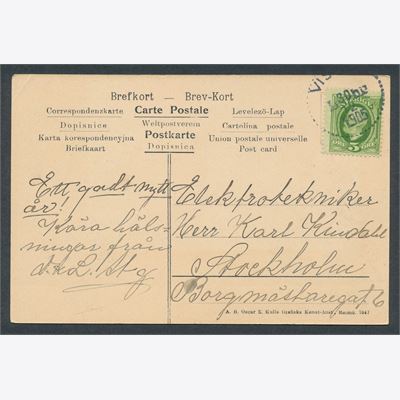 Brefkort — Brev-Kort
Correspondenzkarte Carte Postale Levelező-Lap
Dopisnice Weltpostverein Cartolina postale
Karta korespondencyjna Postkarte Union postale universelle
Briefkaart Dopisnica Post card
5 ÖRE
Ett godt nytt
år!
Kära häls-
ningar från
Elektrotekniker
Herr Karl Kindahl
Stockholm
Borgmästaregat. 6